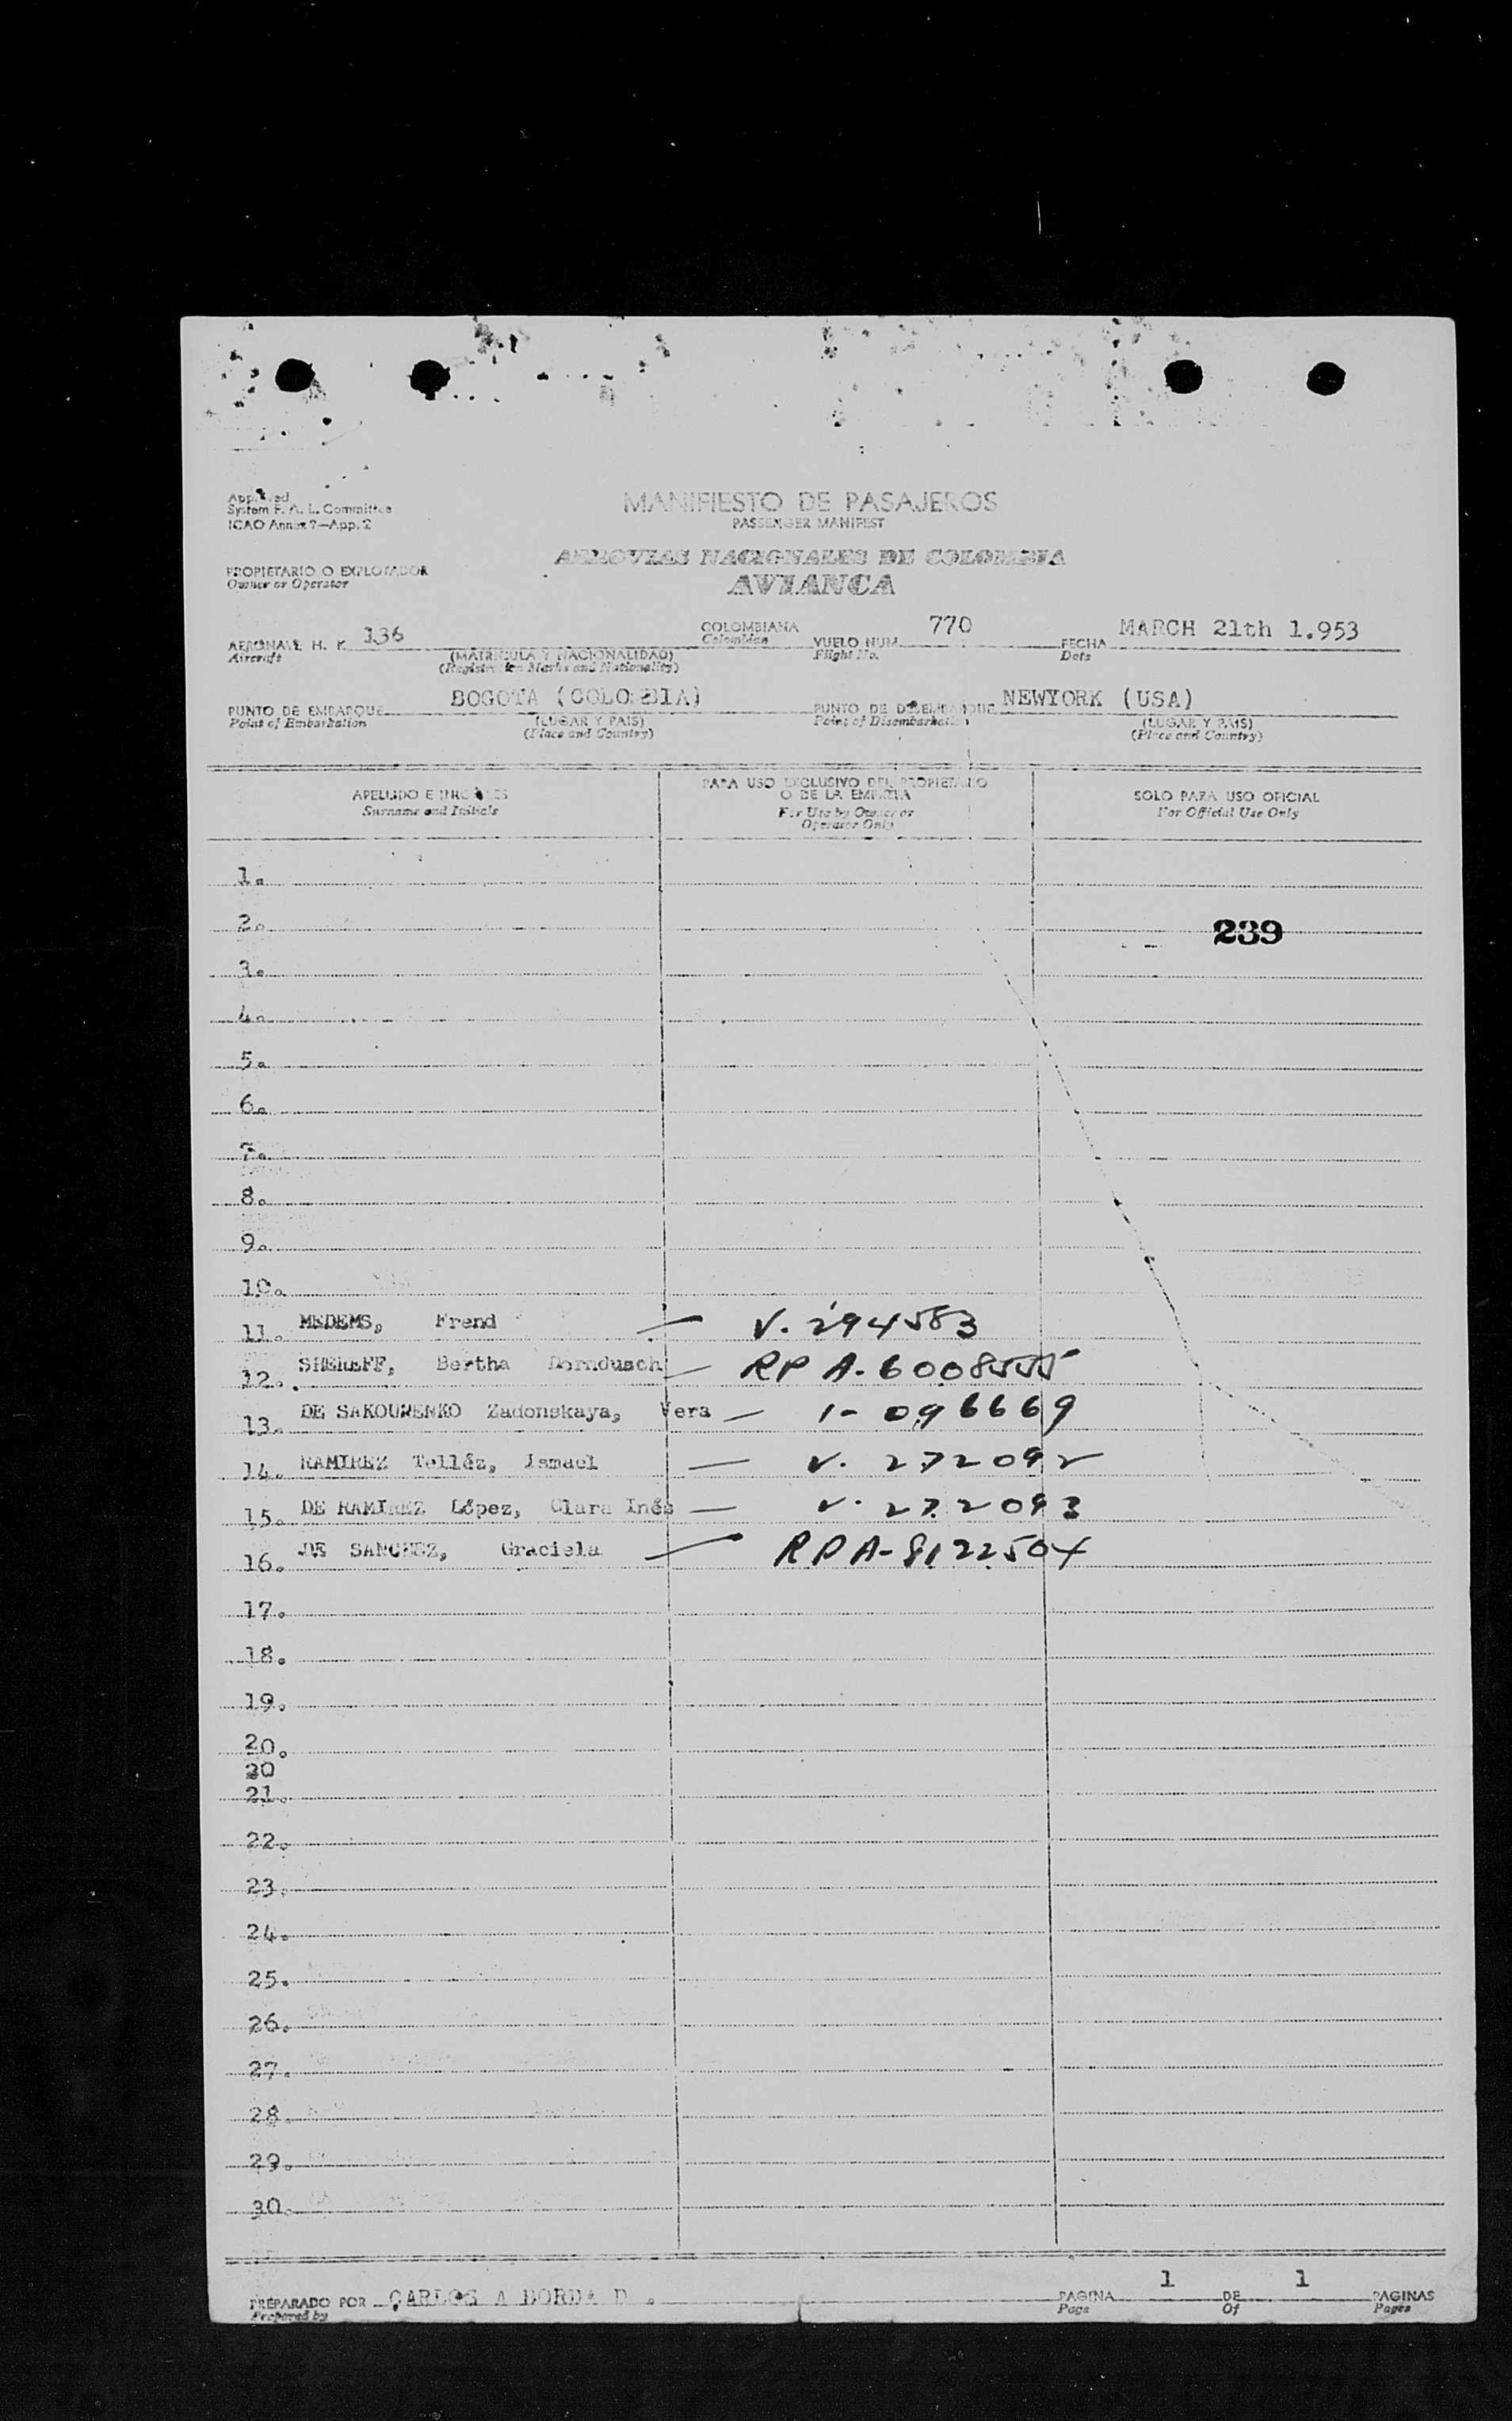 Approved
System F. A. L. Committee
ICAO Annex 9—App. 2
MANIFIESTO DE PASAJEROS
PASSENGER MANIFEST
AEROVIAS NACIONALES DE COLOMBIA
AVIANCA
PROPIETARIO O EXPLOTADOR
Owner or Operator
AERONAVE H. K. 136 COLOMBIANA VUELO NUM. 770 FECHA MARCH 21th 1.953
Aircraft (MATRICULA Y NACIONALIDAD) Colombian Flight No. Date
(Registration Marks and Nationality)
PUNTO DE EMBARQUE BOGOTA (COLOMBIA) PUNTO DE DESEMBARQUE NEWYORK (USA)
Point of Embarkation (LUGAR Y PAIS) Point of Disembarkation (LUGAR Y PAIS)
(Place and Country) (Place and Country)
APELLIDO E INICIALES
Surname and Initials
PARA USO EXCLUSIVO DEL PROPIETARIO
O DE LA EMPRESA
For Use by Owner or
Operator Only
SOLO PARA USO OFICIAL
For Official Use Only
1.
2. 239
3.
4.
5.
6.
7.
8.
9.
10.
11. MEDEMS, Frend — V. 294583
12. SHEREFF, Bertha Dorndusch — RP A-6008555
13. DE SAKOURENKO Zadonskaya, Vera — 1-096669
14. RAMIREZ Telléz, Ismael — V. 272092
15. DE RAMIREZ López, Clara Inés — V. 272093
16. DE SANCHEZ, Graciela — RPA-8122504
17.
18.
19.
20.
20
21.
22.
23.
24.
25.
26.
27.
28.
29.
30.
PREPARADO POR CARLOS A BORDA D. PAGINA 1 DE 1 PAGINAS
Prepared by Page Of Pages